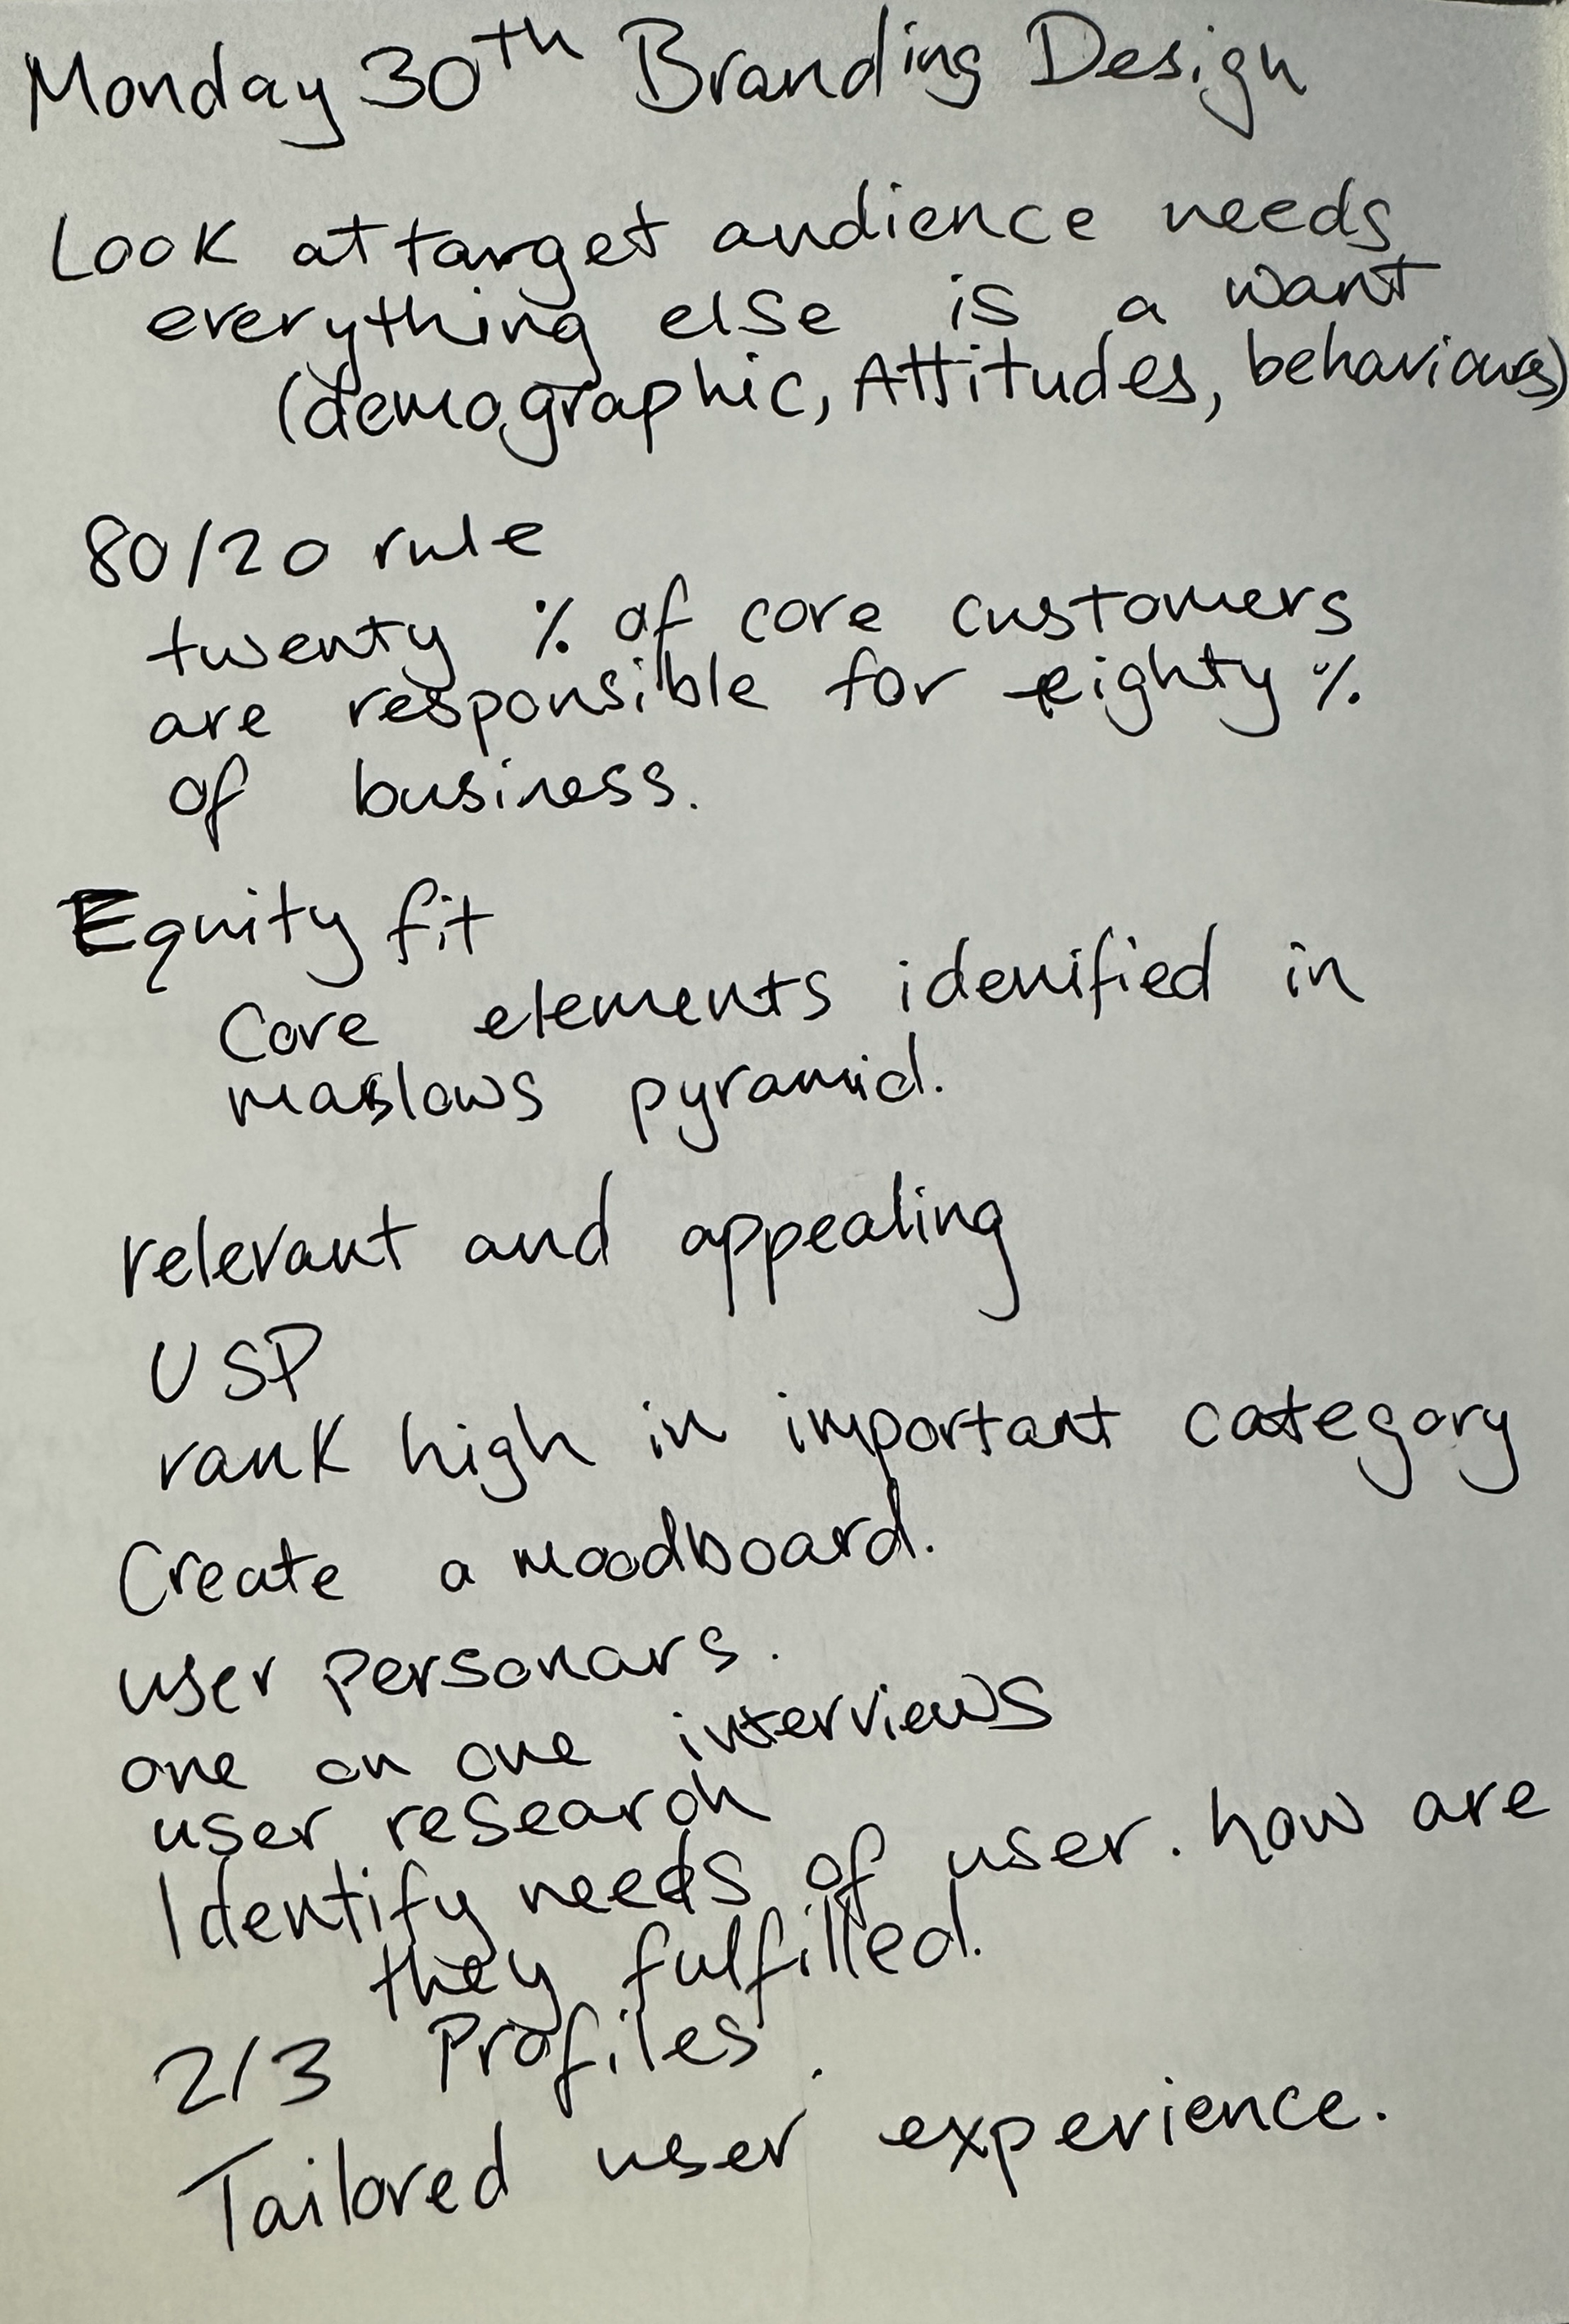 Monday 30th Branding Design
Look at target audience needs
everything else is a want
(demographic, Attitudes, behaviours)
80/20 rule
twenty % of core customers
are responsible for eighty %
of business.
Equity fit
Core elements idenified in
maslows pyramid.
relevant and appealing
USP
rank high in important category
Create a moodboard.
user personars.
one on one interviews
user research
Identify needs of user. how are
they fulfilled.
2/3 Profiles.
Tailored user experience.